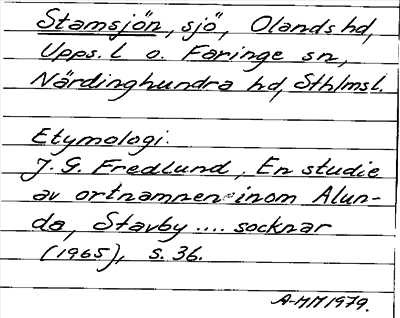 Stamsjön, sjö, Olands hd,
Upps. l. o. Faringe sn,
Närdinghundra hd, Sthlmsl.
Etymologi.
J. G. Fredlund, En studie
av ortnamnen inom Alun-
da, Stavby .... socknar
(1965), s. 36.
A-MM 1979.